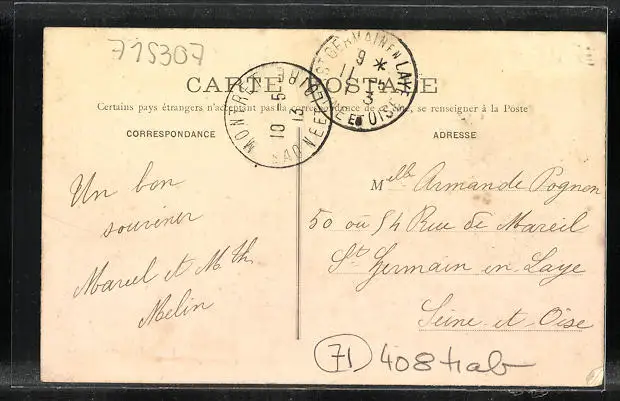 715307
CARTE POSTALE
Certains pays étrangers n'acceptant pas la correspondance de ce côté, se renseigner à la Poste
CORRESPONDANCE
ADRESSE
ST GERMAIN EN LAYE
9 *
11 - 5
13
SEINE ET OISE
MONTRET
10 5
13
SAONE ET LOIRE
Un bon
souvenir
Marcel et Mth
Melin
Melle Armande Pognon
50 ou 54 Rue de Mareil
St Germain en Laye
Seine-et-Oise
71
408 hab